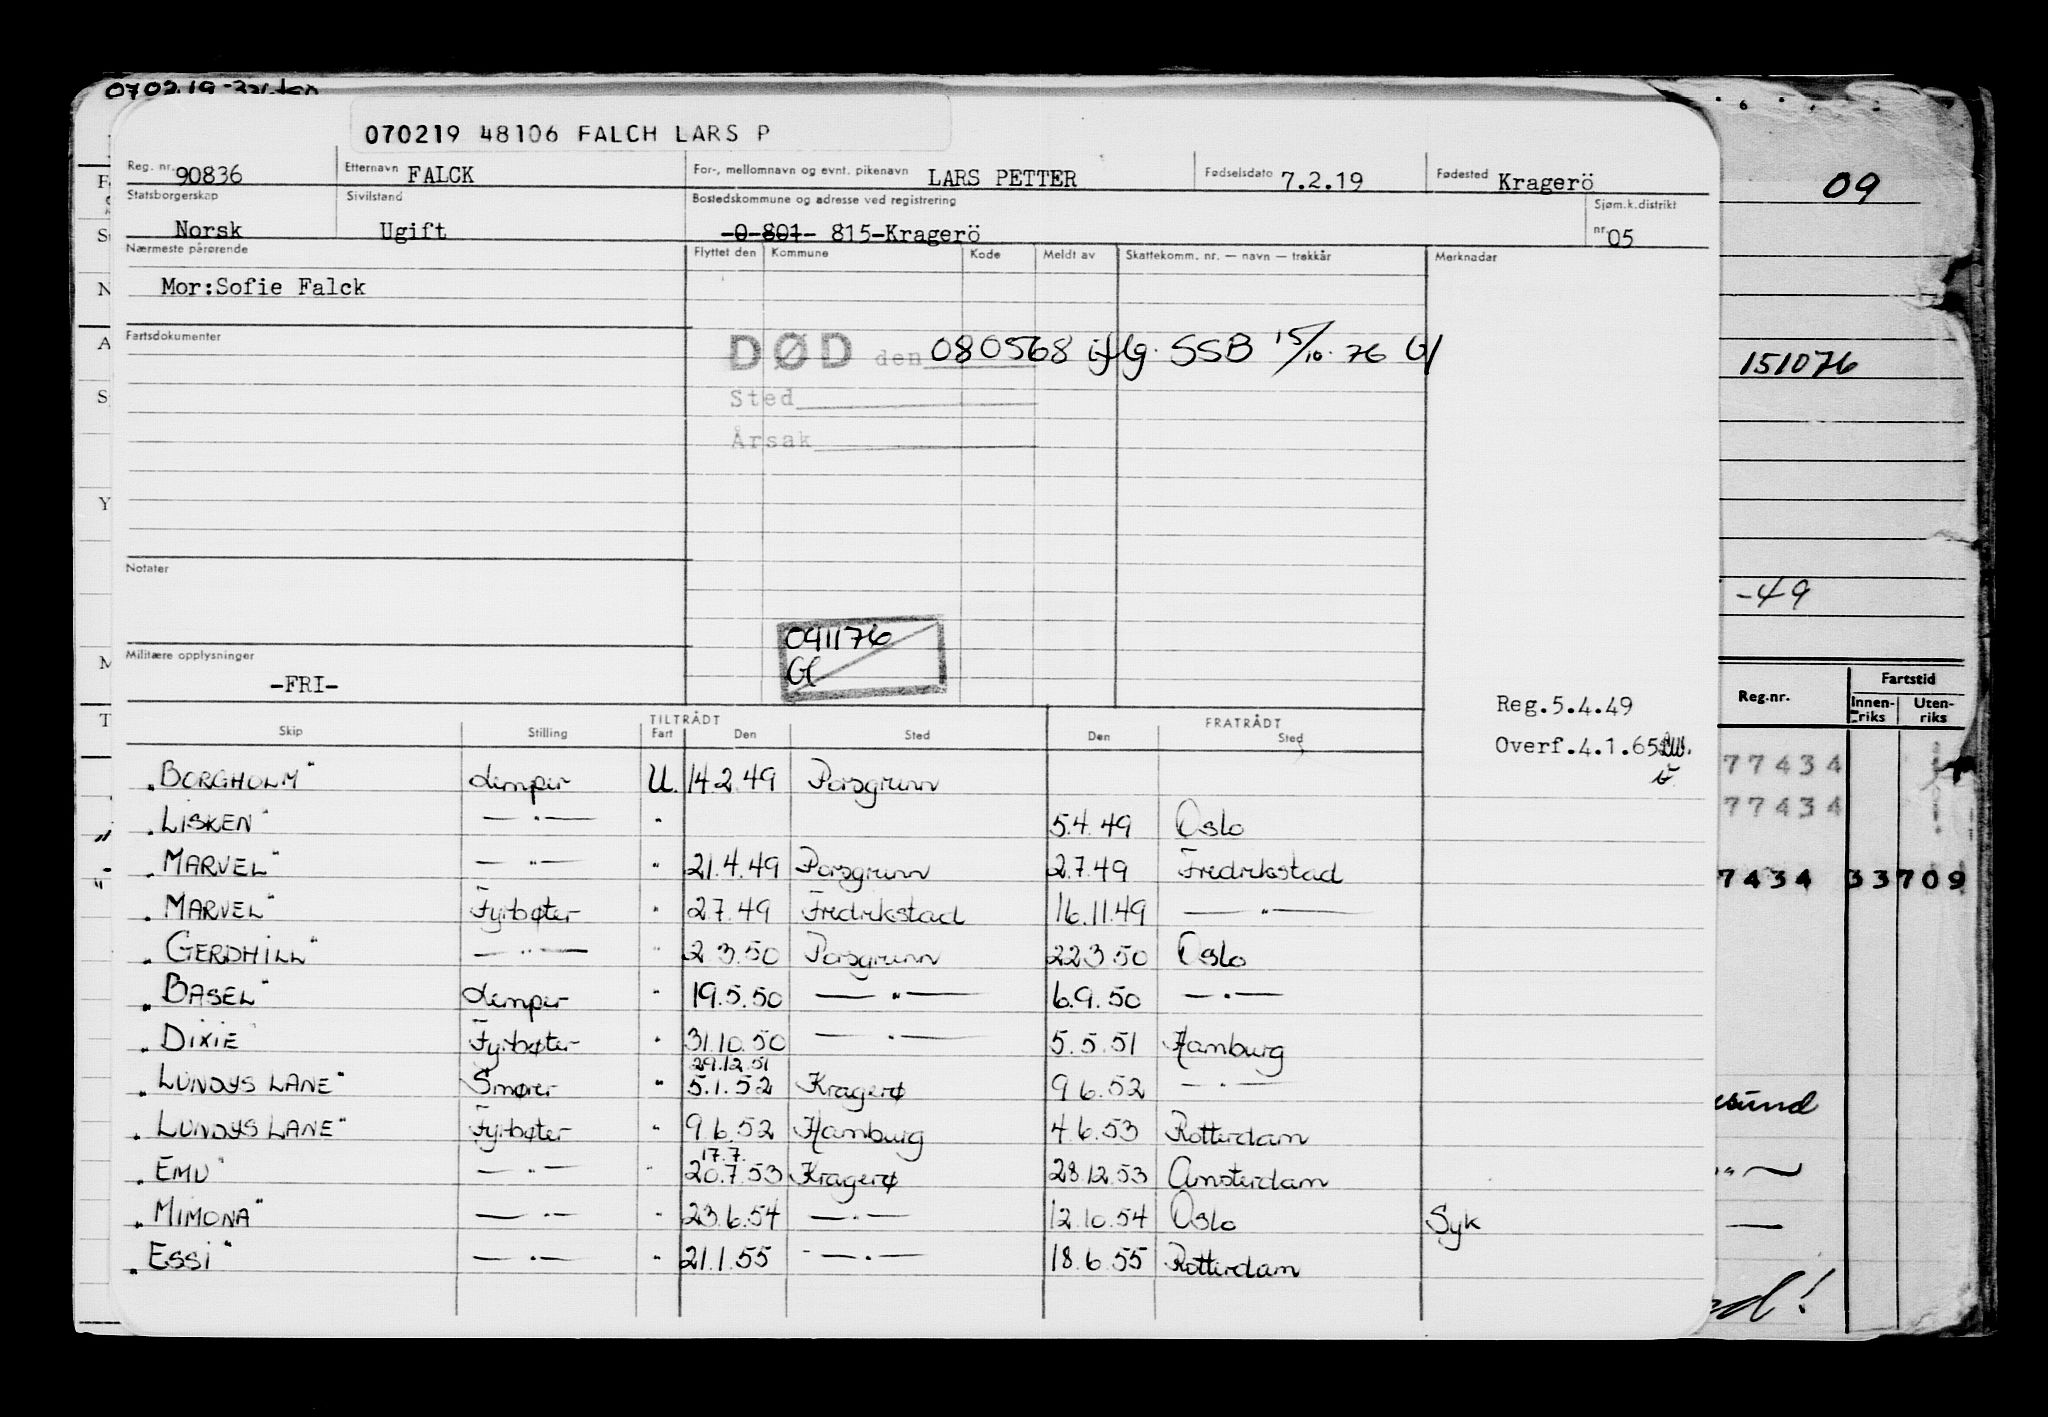 070219 48106 FALCH LARS P
Reg. nr. 90836 Etternavn FALCK For-, mellomnavn og evnt. pikenavn LARS PETTER Fødselsdato 7.2.19 Fødested Kragerö
Statsborgerskap Sivilstand Bostedskommune og adresse ved registrering Sjøm.k.distrikt
Norsk Ugift -0-801- 815-Kragerö nr. 05
Nærmeste pårørende Flyttet den Kommune Kode Meldt av Skattekomm. nr. — navn — trekkår Merknader
Mor:Sofie Falck
Fartsdokumenter
DØD den 080568 iflg. SSB 15/10. 76 Gl
Sted
Årsak
Notater
091176
Gl
Militære opplysninger
-FRI-
Reg.5.4.49
Overf.4.1.65
TILTRÅDT FRATRÅDT
Skip Stilling Fart Den Sted Den Sted
"BORGHOLM" Lemper U. 14.2.49 Porsgrunn
"LISKEN" — " — " 5.4.49 Oslo
"MARVEL" — " — " 21.4.49 Porsgrunn 2.7.49 Fredrikstad
"MARVEL" Fyrbøter " 2.7.49 Fredrikstad 16.11.49 — " —
"GERDHILL" — " — " 2 3.50 Porsgrunn 22.3.50 Oslo
"BASEL" Lemper " 19.5.50 — " — 6.9.50 — " —
"DIXIE" Fyrbøter " 31.10.50 — " — 5.5.51 Hamburg
29.12.51
"LUNDYS LANE" Smører " 5.1.52 Kragerø 9 6.52 — " —
"LUNDYS LANE" Fyrbøter " 9.6.52 Hamburg 4.6.53 Rotterdam
17.7.
"EMU" — " — " 20.7.53 Kragerø 28.12.53 Amsterdam
"MIMONA" — " — " 23.6.54 — " — 12.10.54 Oslo Syk
"ESSI" — " — " 21.1.55 — " — 18.6.55 Rotterdam
09
151076
-49
Reg.nr. Fartstid
Innen-riks Uten-riks
77434
77434
7434 33709